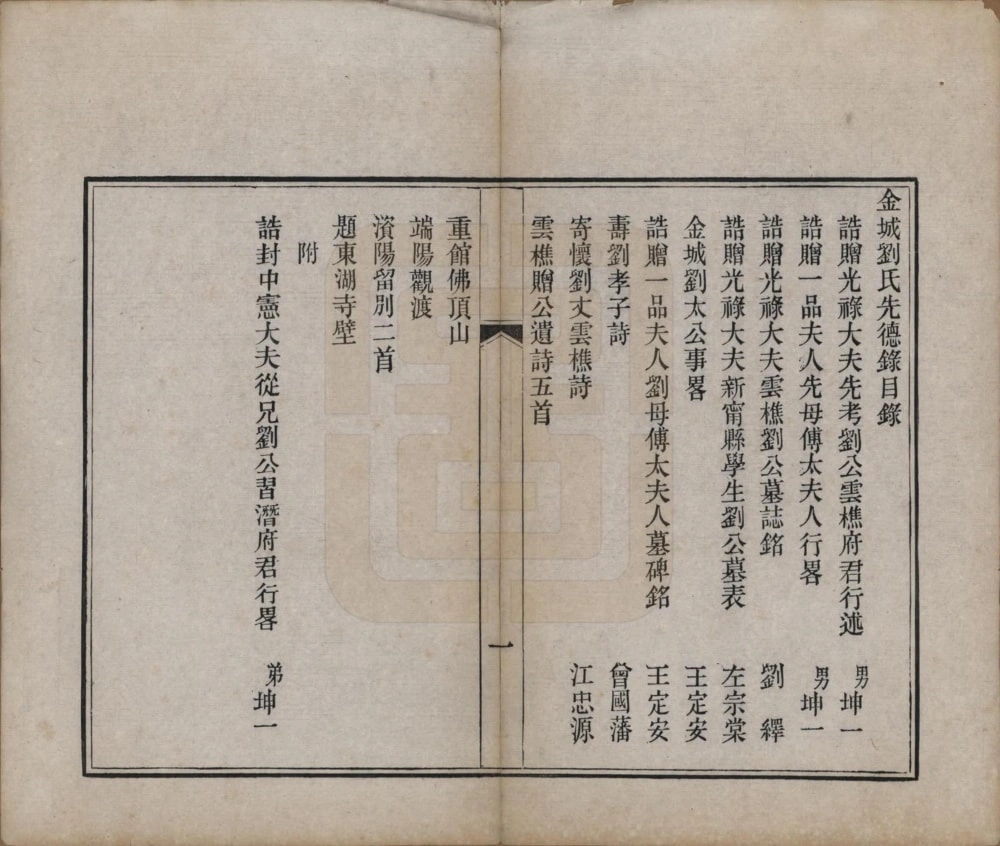 金城劉氏先德錄目錄
誥贈光祿大夫先考劉公雲樵府君行述 男坤一
誥贈一品夫人先母傅太夫人行畧 男坤一
誥贈光祿大夫雲樵劉公墓誌銘 劉繹
誥贈光祿大夫新甯縣學生劉公墓表 左宗棠
金城劉太公事畧 王定安
誥贈一品夫人劉母傅太夫人墓碑銘 王定安
壽劉孝子詩 曾國藩
寄懷劉丈雲樵詩 江忠源
雲樵贈公遺詩五首
一
重館佛頂山
端陽觀渡
濱陽留別二首
題東湖寺壁
附
誥封中憲大夫從兄劉公習潛府君行畧 弟坤一